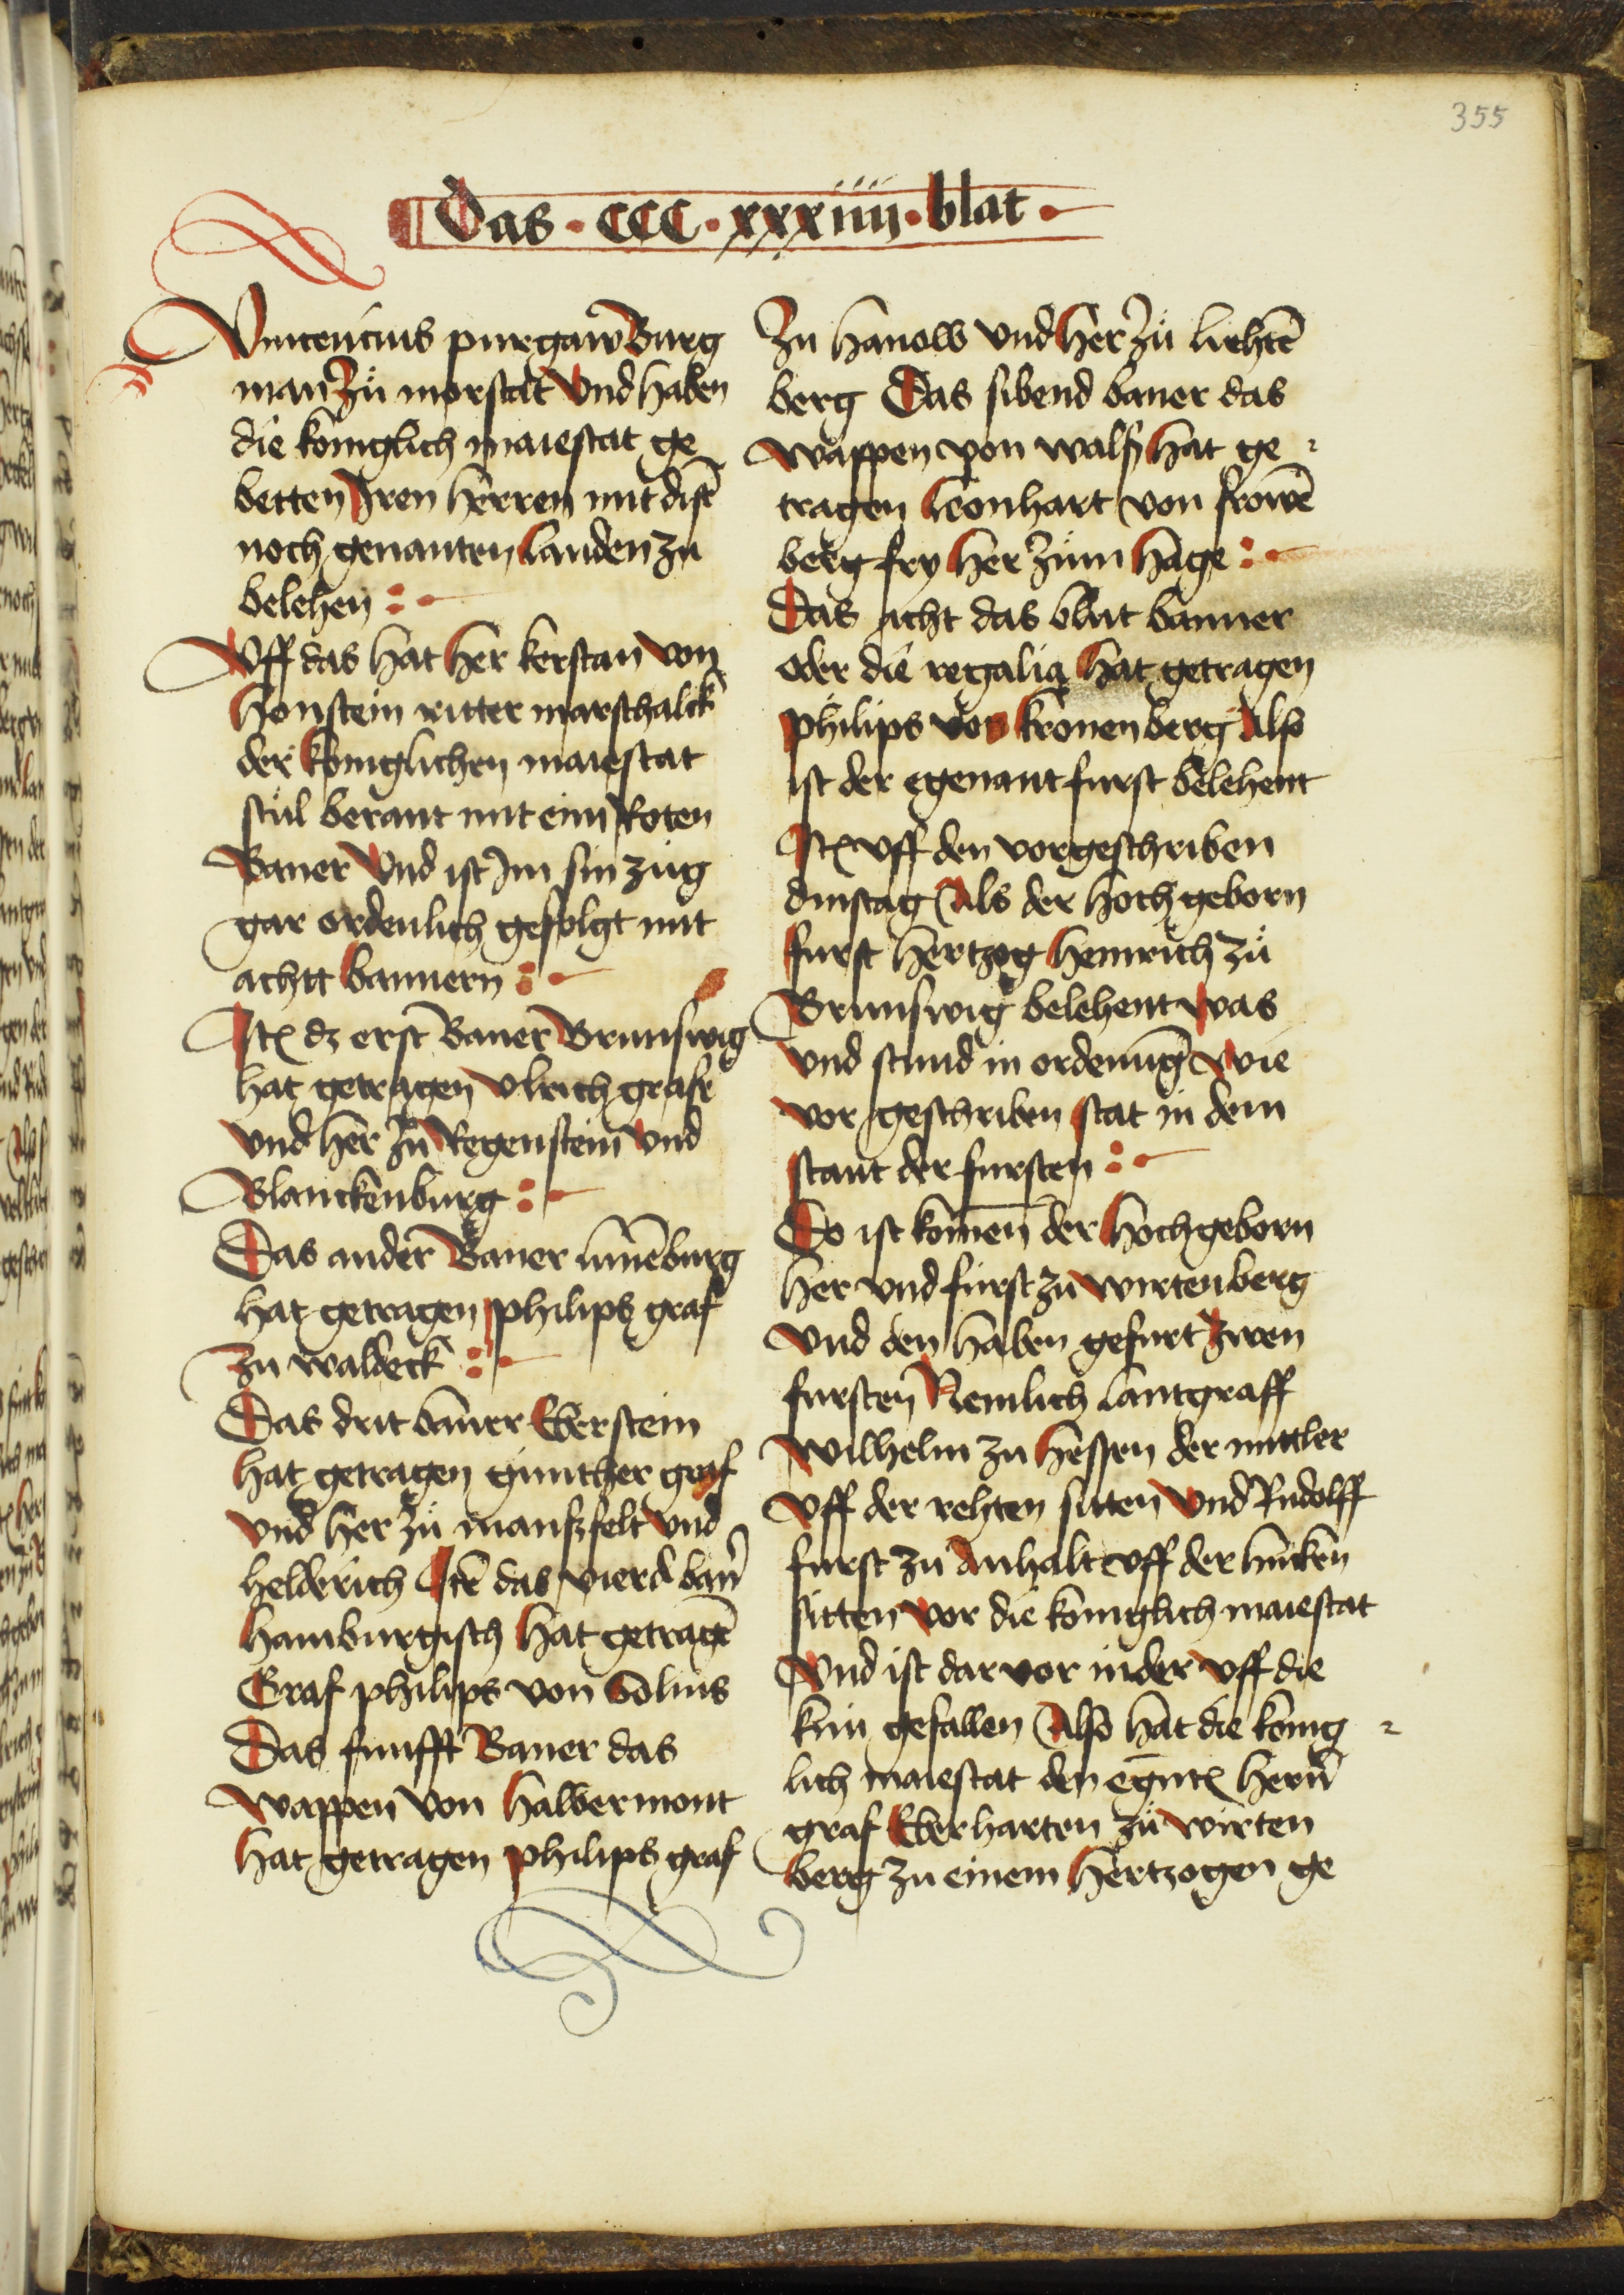 355
Das · CCC · xxxiiii · blat ·
Vincencius purgaw Burg
man zů morstat Vnd haben
die koniglich maiestat ge
betten Iren herren mit disē
noch genanten Landen zu
belehen :
Vff das hat Her kerstan von
Honstein ritter marschalck
der koniglichen maiestat
stůl berant mit eim Roten
Baner Vnd ist Im sin zug
gar ordenlich gefolgt mit
achtt bannern :
Itē dz erst Baner Brunswig
hat getragen Vlrich grafe
vnd her zů Regenstein vnd
Blanckenburg :
Das ander Baner lunēburg
hat getragen philips graf
zu waldeck :
Das drit baner Eberstein
hat getragen gunther graf
vnd her zů mansfelt vnd
helderich Itē das vierd ban̄
hamburgisch hat getragē
Graf philips von Solms
Das funfft Baner das
wappen von halbermont
hat getragen philips graf
Zu hanow vnd Her zů liehtē
berg Das sibend baner das
wappen von walß hat ge-
tragen Leonhart von frowē
berg fry her zum Hage :
Das acht das blut banner
oder die regalia hat getragen
philips von kronenberg Also
ist der egenant furst belehent
Itē vff den vorgeschriben
dinstag Als der hochgeborn
furst hertzog heinrich zů
Brunswig belehent was
vnd stund in ordenūg wie
vor geschriben stat in dem
stant der fursten :
Do ist komen der hochgeborn
her vnd furst zu wirtenberg
vnd den haben gefurt zwen
fursten Nemlich lantgraff
wilhelm zu hessen der mittler
vff der rehten sitten vnd Rudolff
furst zu Anhalt vff der lincken
sitten vor die koniglich maiestat
Vnd ist dar vor nider vff die
knü gefallen Also hat die konig-
lich maiestat den egn̄tē hern̄
graf Eberharten zů wirten
berg zu einem hertzogen ge